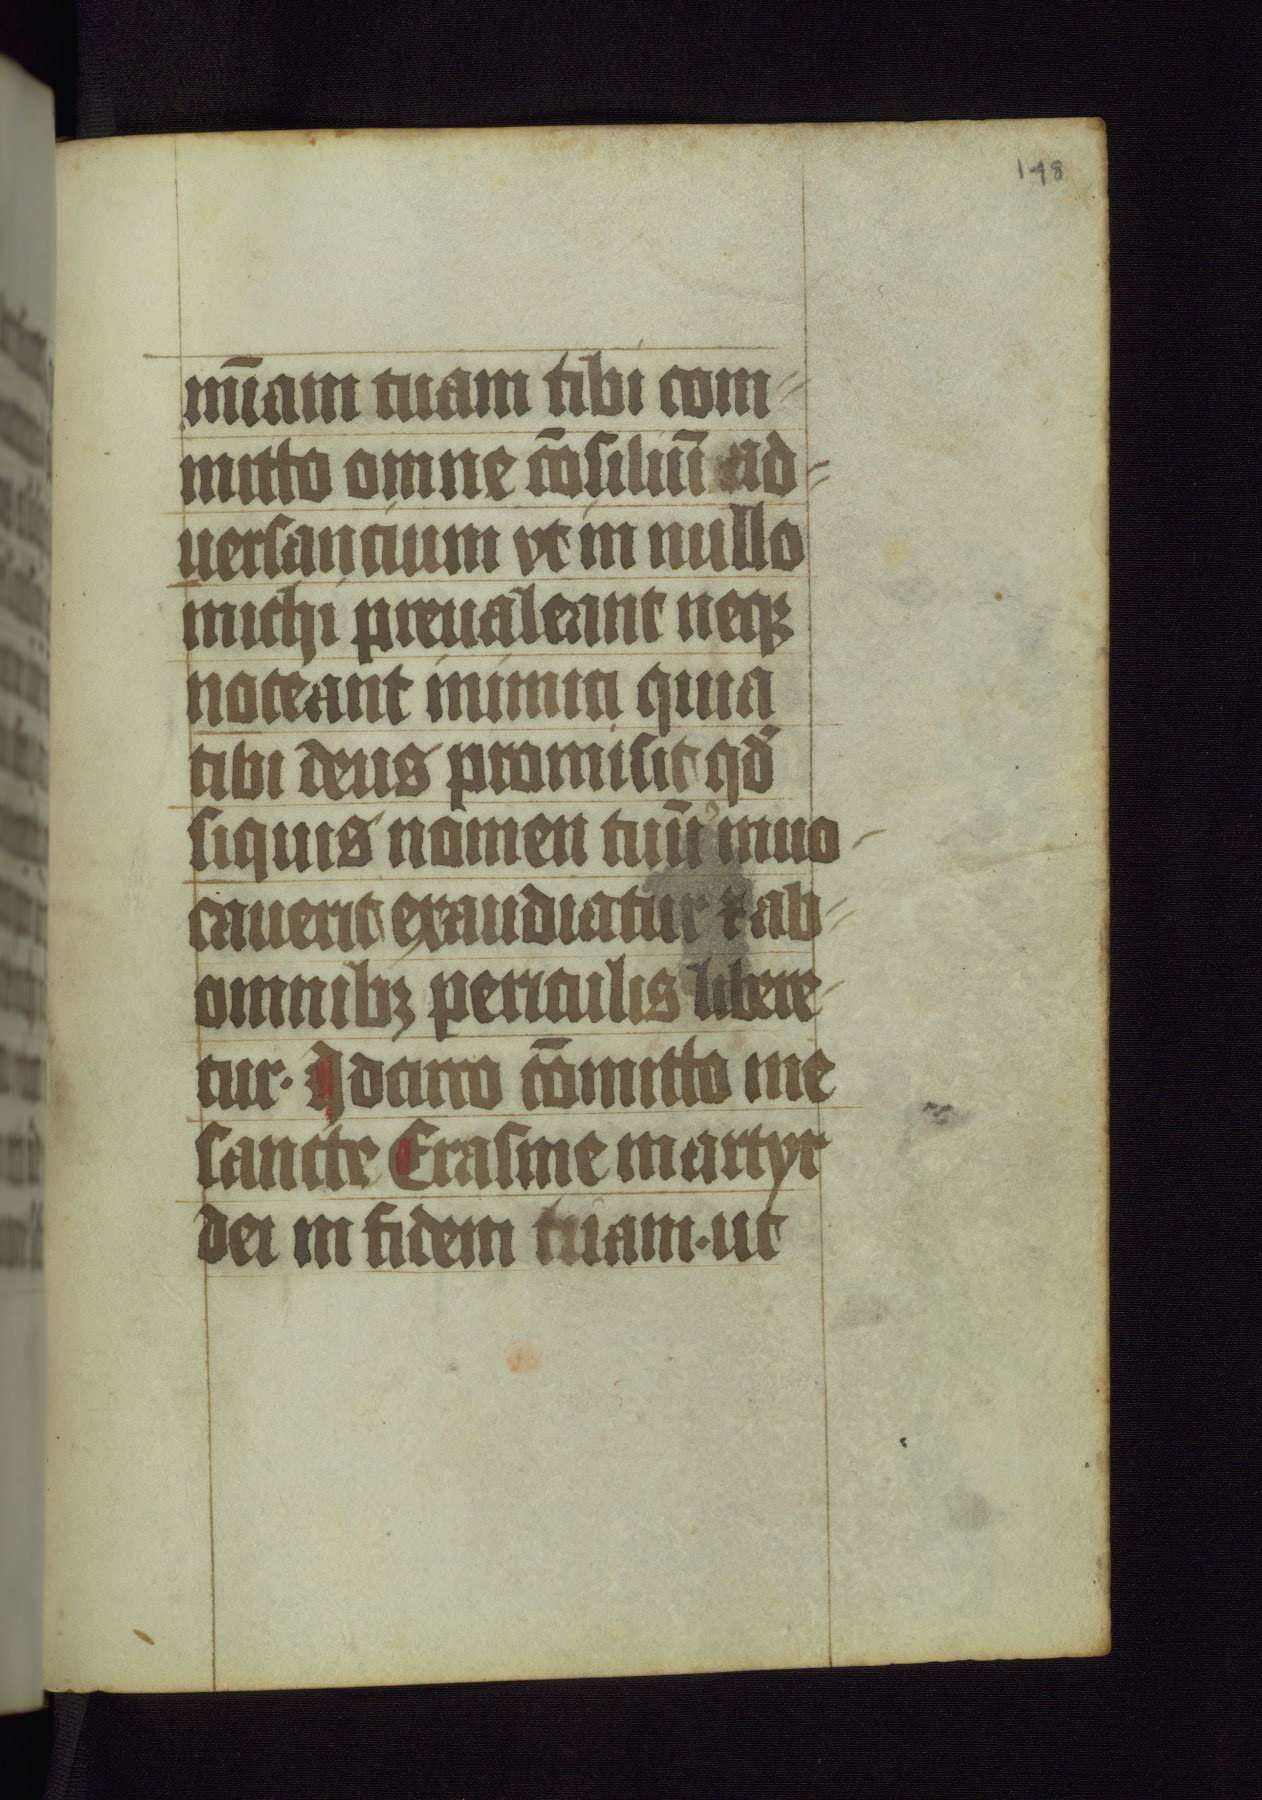 148
mīam tuam tibi com〃
mitto omne cōsiliū ad〃
uersancium vt in nullo
michi preualeant neqꝫ
noceant inimici quia
tibi deus promisit qd̉
siquis nomen tuū inuo⸗
cauerit exaudiatur ⁊ ab〃
omnibꝫ periculis libere⸗
tur. Qdcirco cōmitto me
sancte Erasme martyr
dei in fidem tuam. ut